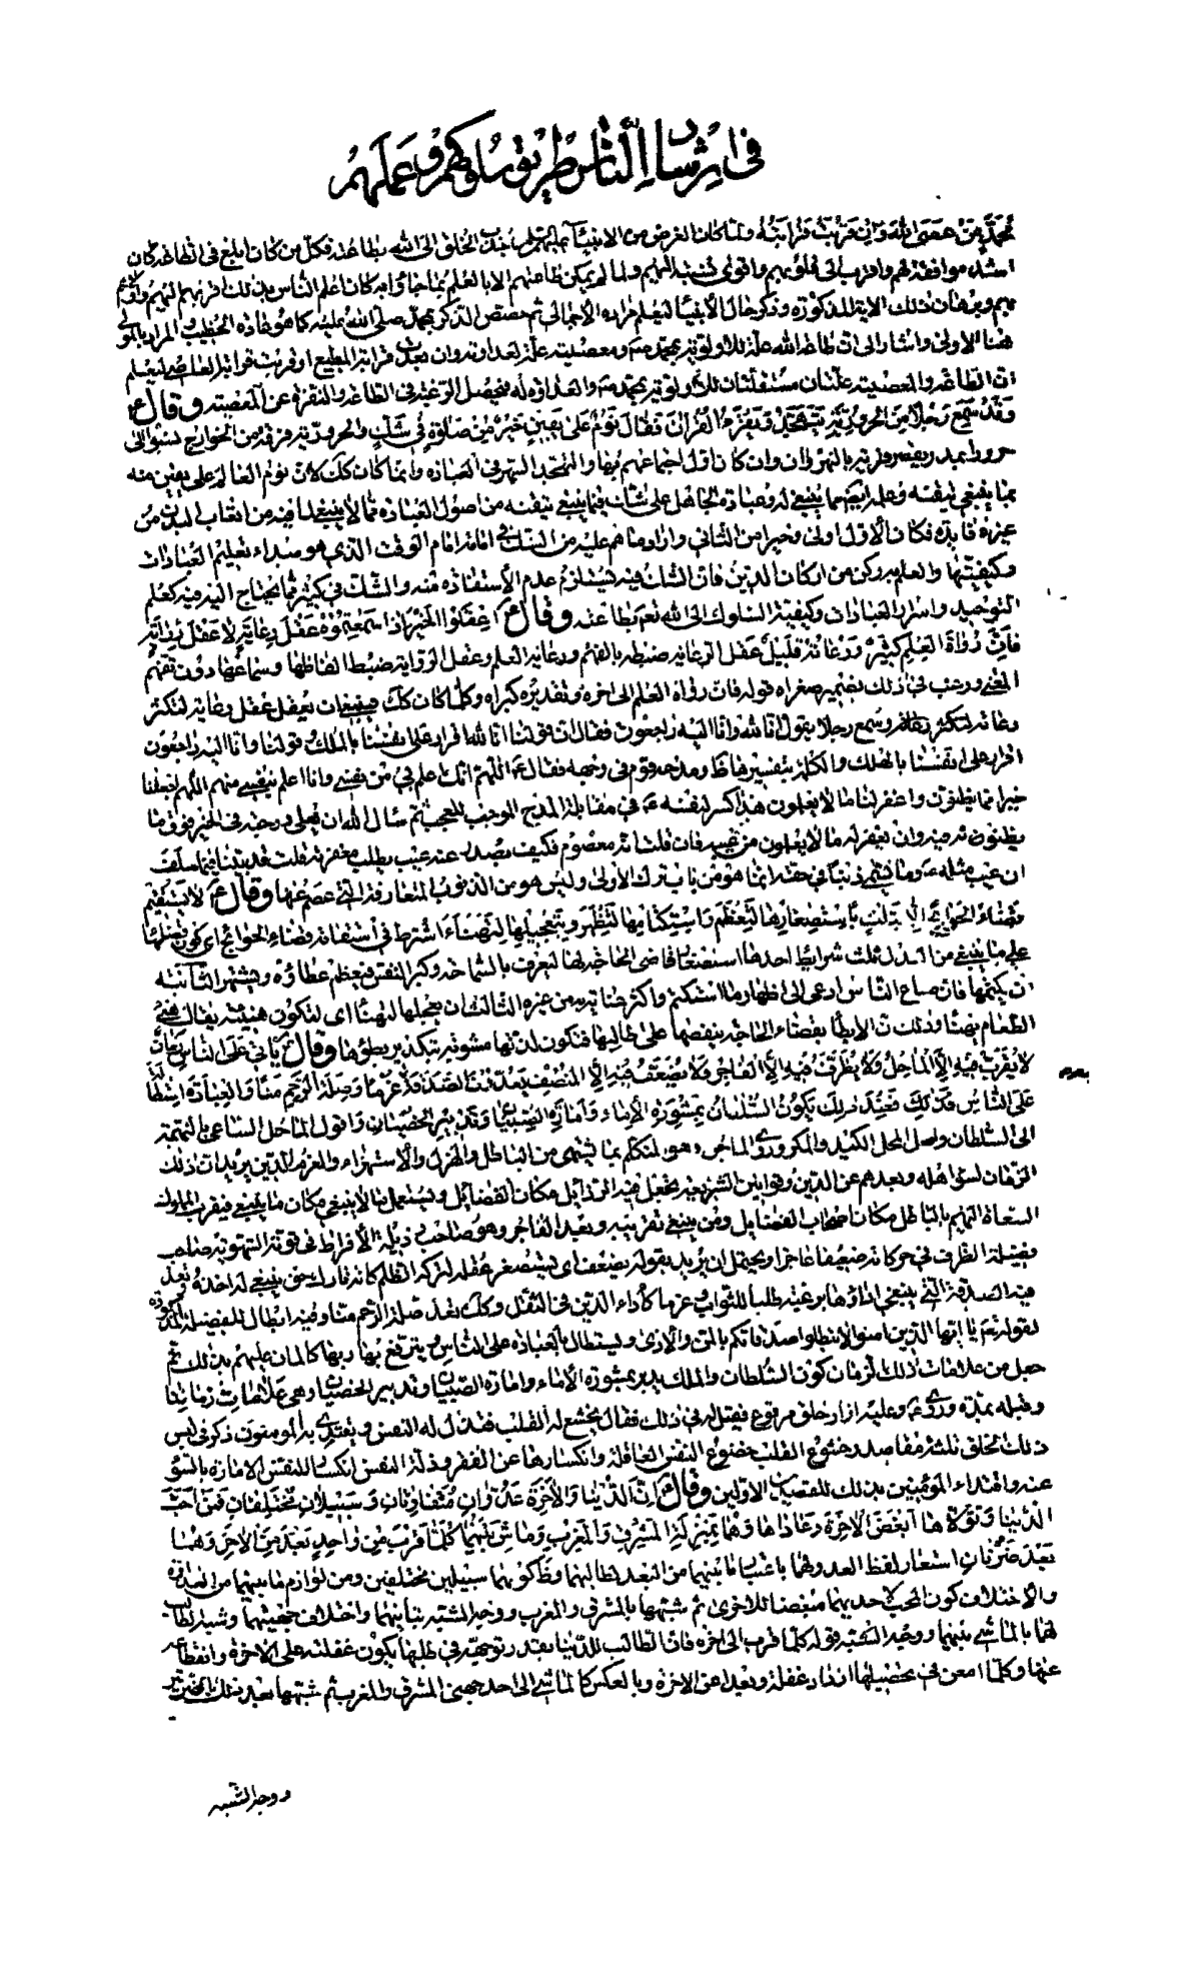 في ارشاد الناس طريق سلوكهم وعملهم
محمد من عصى الله وان قربت قرابته ولما كان الغرض من الانبياء جذب الخلق الى الله بطاعته فكل من كان ابلغ في اطاعته كان
اشد موافقة لهم واقرب الى قلوبهم واقوى نسبة اليهم ولما لم يمكن طاعتهم الا بالعلم بما جاؤا به كان اعلم الناس بذلك اقربهم اليهم
بهم وبرهان ذلك الاية المذكورة وذكر حال الانبياء ثم خصص الذكر بمحمد صلى الله عليه كما هو عادة الخطيب والمراد
هنا الاولى واشار الى ان طاعة الله علة للاولوية بمحمد ومعصيته علة لعداوته وان بعدت قرابة المطيع او قربت قرابة العاصي ليعلم
ان الطاعة والمعصية علتان مستقلتان للاولوية بمحمد والعداوة له فيحصل الرغبة في الطاعة والنفرة عن المعصية وقال ع
وقد سمع رجلا من الحرورية يتهجد ويقرء القران فقال نوم على يقين خير من صلوة في شك والحرورية فرقة من الخوارج نسبوا الى
حروراء يمد ويقصر قرية بالنهروان وكان اول اجتماعهم بها والتهجد السهر في العبادة وانما كان كك لان نوم العالم على يقين منه
بما ينبغي تيقنه وعلم ينبغي له وعبادة الجاهل على شك فيما ينبغي تيقنه من اصول العبادة مما لا ينبغي لما فيه من اتعاب البدن من
غير فايدة فكان الاول اولى وخيرا من الثاني واراد ما هم عليه من الشك في امامة امام الوقت الذي هو مبدء تعليم العبادات
وكيفيتها والعلم به ركن من اركان الدين فان الشك فيه يستلزم عدم الاستفادة منه والشك في كثير مما يحتاج اليه فيه كعلم
التوحيد واسرار العبادات وكيفية السلوك الى الله تعم بطاعته وقال ع اعقلوا الخبر اذا سمعتموه عقل رعاية لا عقل رواية
فان رواة العلم كثير ورعاته قليل عقل الرعاية ضبطه بالفهم ورعاية العلم وعقل الرواية ضبط الفاظها وسماعها دون تفهم
المعنى ورغب في ذلك بضمير صغراه قوله فان رواة العلم الى اخره وتقديره كبراه وكلما كان كك فينبغي ان يعقل عقل رعاية لتكثر
رعاته وسمع رجلا يقول انا لله وانا اليه راجعون فقال ان قولنا انا لله اقرار على انفسنا بالملك وقولنا وانا اليه راجعون
اقرار على انفسنا بالهلك والكلمة بتفسيرها ومدحه قوم في وجهه فقال اللهم انك اعلم بي من نفسي وانا اعلم بنفسي منهم اللهم اجعلنا
خيرا مما يظنون واغفر لنا ما لا يعلمون هذا كسر لنفسه ع في مقابلة المدح الموجب للعجب ثم سال الله ان يعلى درجته في الخير فوق ما
يظنون وان يغفر له ما لا يعلمون من عيبه فان قلت انه معصوم فكيف يصدر عنه عيب يطلب مغفرته قلت قد بينا فيما سلف
ان عيب مثله وما يسمى ذنبا في حقه انما هو من باب ترك الاولى وليس هو من الذنوب المتعارفة التي عصم عنها وقال ع لا يستقيم
قضاء الحوايج الا بثلث باستصغارها لتعظم وباستكتامها لتظهر وبتعجيلها لتهنأ اشترط في استقامة قضاء الحوائج اي كون
على ما ينبغي من العدل ثلث شرايط احدها استصغار قاضي الحاجة لها ليعرف بالسماحة وكبر النفس فيعظم عطاؤه ويشتهر الثانية
ان يكتمها فان طباع الناس ادعى الى اظهار ما استكتم واكثر عناية به من غيره الثالثة ان يعجلها لتهنأ اي لتكون هنيئة يقال هنئ
الطعام يهنأ وذلك ان الابطأ بقضاء الحاجة ينغصها على طالبها فتكون لذتها مشوبة بتكدير بطؤها وقال ع ياتي على الناس زمان
لا يقرب فيه الا الماحل ولا يظرف فيه الا الفاجر ولا يضعف فيه الا المنصف يعدون الصدقة غرما وصلة الرحم منا والعبادة استطالة
على الناس فعند ذلك يكون السلطان بمشورة الاماء وامارة الصبيان وتدبير الخصيان واقول الماحل الساعي بالنميمة
الى السلطان واصل المحل الكيد والمكر وروى الماجن وهو المتكلم بما يشتهى من الباطل والهزل والاستهزاء والغرض الذي يريد ان ذلك
الزمان لسوء اهله وبعدهم عن الدين وقوانين الشريعة يجعل فيه الرذايل مكان الفضايل ويستعمل ما لا ينبغي مكان ما ينبغي فيقرب الملوك
السعاة اليهم بالباطل مكان اصحاب الفضايل ومن ينبغي تقريبه ويعد الفاجر وهو صاحب رذيلة الافراط في قوته الشهوية صاحب
فضيلة الظرف في حركاته ضعيفا عاجزا ويحتمل ان يريد بقوله يضعف اي يستصغر عقله لتركه الظلم كانه تارك حق ينبغي له اخذه وتعد
فيه الصدقة التي ينبغي اداؤها برغبة طلبا للثواب غرما كأداء الدين في الثقل وكك تعد صلة الرحم منا وفيه ابطال للفضيلة المذكورة
لقوله تعم يا ايها الذين امنوا لا تبطلوا صدقاتكم بالمن والاذى ويستطال بالعبادة على الناس ويترفع بها وبها كالمان عليهم بذلك ثم
جعل من علامات ذلك الزمان كون السلطان والملك يدبر بمشورة الاماء وامارة الصبيان وتدبير الخصيان وهي علامات زماننا
وقبله بمدة وروى ع وعليه ازار خلق مرقوع فقيل له في ذلك فقال يخشع له القلب وتذل له النفس ويقتدى به المؤمنون ذكر في لبس
ذلك الخلق ثلثة مقاصد وخشوع القلب خضوع النفس العاقلة وانكسارها عن الفقر وذلة النفس انكسار للنفس الامارة بالسوء
عنه واقتداء المؤمنين بذلك للقصدين الاولين وقال ع ان الدنيا والاخرة عدوان متفاوتان وسبيلان مختلفان فمن احب
الدنيا وتولاها ابغض الاخرة وعاداها وهما بمنزلة المشرق والمغرب وماش بينهما كلما قرب من واحد بعد من الاخر وهما
بعد ضرتان استعار لفظ العدو لهما باعتبار ما بينهما من البعد لطالبهما وكونهما سبيلين مختلفين ومن لوازم ما بينهما من العداوة
والاختلاف كون المحب لاحدهما مبغضا للاخرى ثم شبههما بالمشرق والمغرب ووجه الشبه تباينهما واختلاف جهتيهما وشبه الطالب
لهما بالماشي بينهما ووجه الشبه قوله كلما قرب الى اخره فان الطالب للدنيا بقدر توجهه في طلبها يكون غفلته على الاخرة وانقطاعه
عنها وكلما امعن في تحصيلها ازداد غفلة وبعدا عن الاخرة وبالعكس كالماشي الى احد جهتي المشرق والمغرب ثم شبهها بعد ذلك بالضرتين
ووجه الشبه